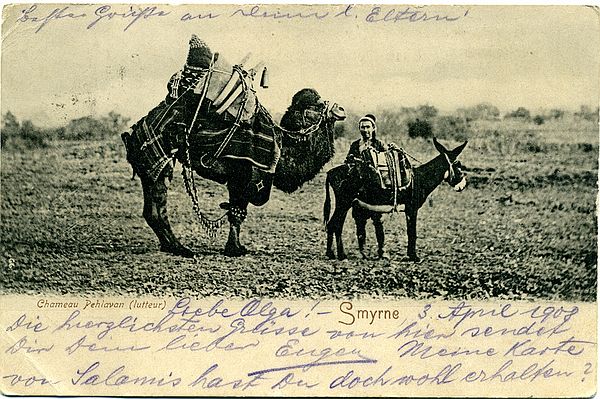 Beste Grüße an Deine l. Eltern!
Chameau Pehlavan (lutteur) Liebe Olga! – Smyrne 3. April 1908
Die herzlichsten Grüsse von hier sendet
Dir Dein lieber Eugen Meine Karte
von Salamis hast Du doch wohl erhalten?